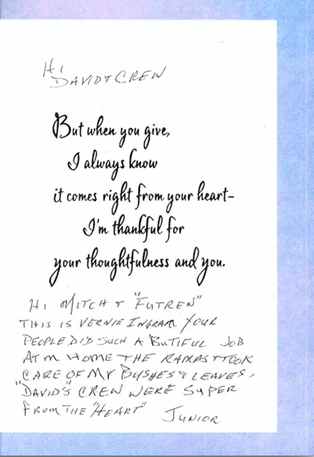 Hi
DAVID + CREW
But when you give,
I always know
it comes right from your heart–
I'm thankful for
your thoughtfulness and you.
Hi MITCH + "FUTREN"
THIS IS VERNIE INGRAM YOUR
PEOPLE DID SUCH A BUTIFUL JOB
AT M HOME THE RAMPS + TOOK
CARE OF MY BUSHES & LEAVES,
"DAVID'S" CREW WERE SUPER
FROM THE "HEART" JUNIOR